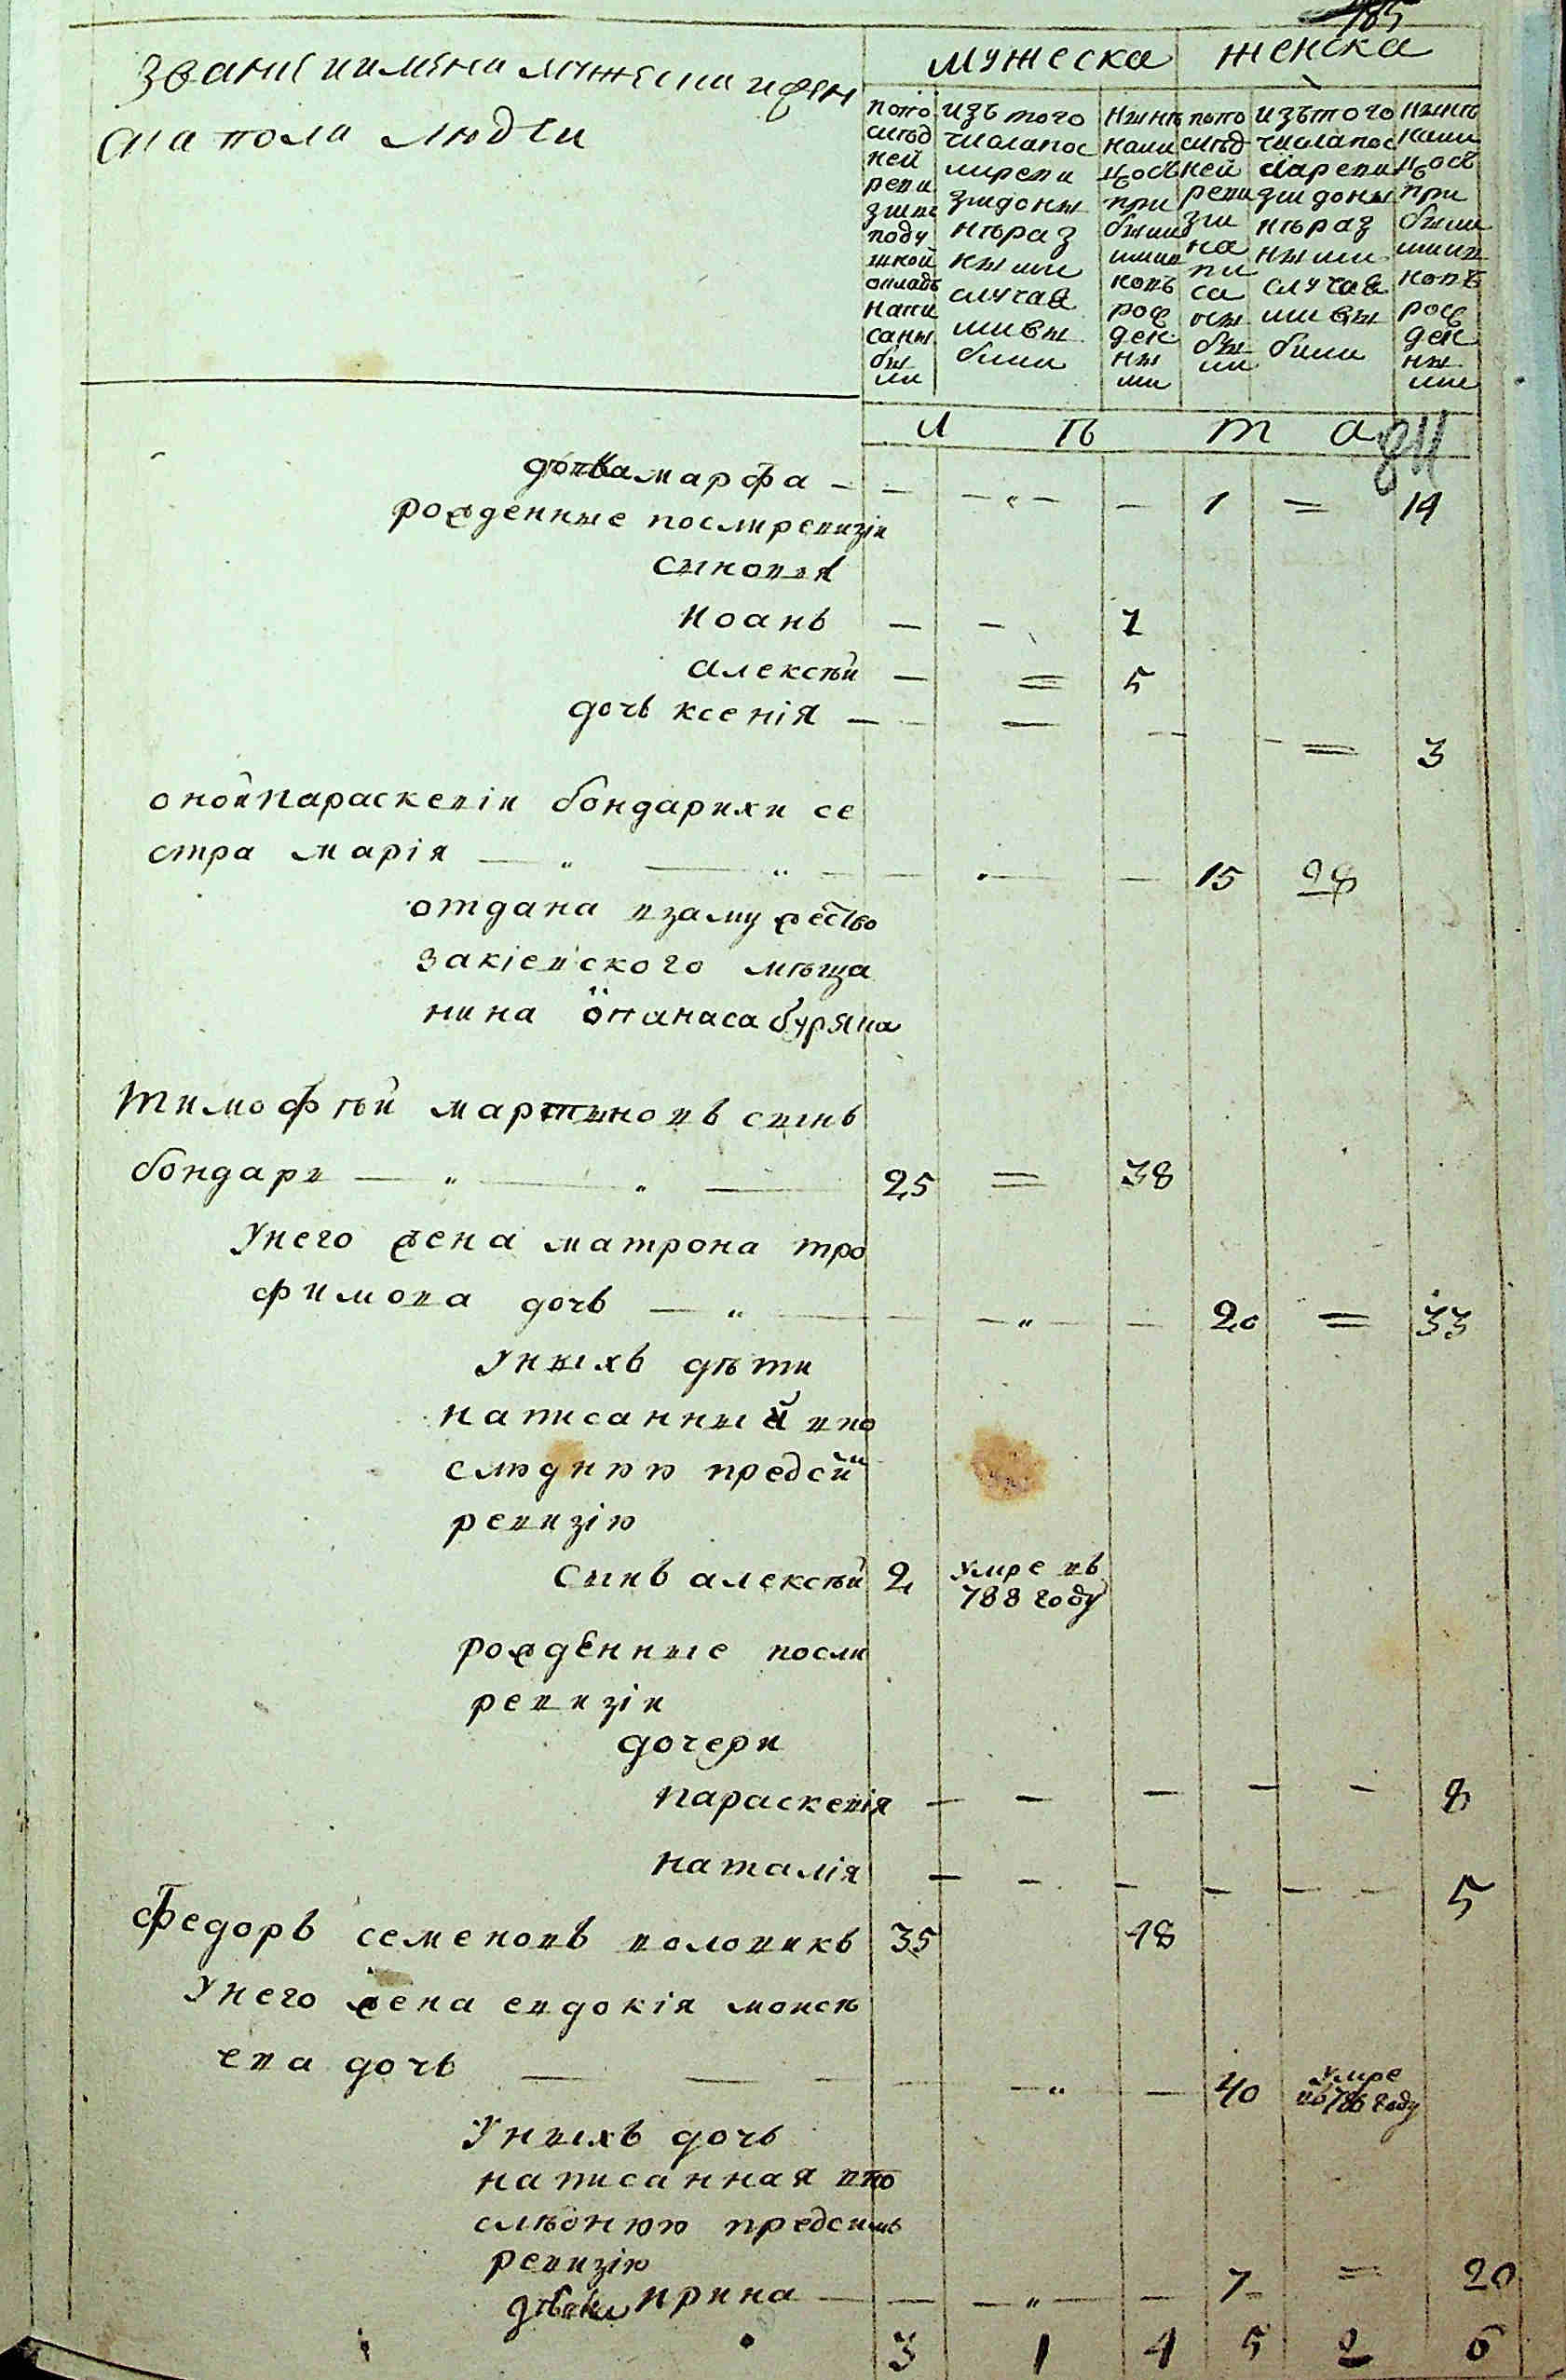 185
мужеска женска
званіе иимяна мужеска ижен
ска пола люди
попо слѣд ней реви зіи по ду шной окладъ напи саны бы ли
изъ того числапос лиреви зіидоны нѣраз ными случая мивы были
нынѣ нали цосъ при былы мии новъ рож ден ны ми
попо слѣд ней реви зіи на пи са ны бы ли
изътого числапос лѣреви зіи доны нѣраз ными случая ми вы были
нынѣ нали цосъ при былы мии новъ рож ден ны ми
л ѣ т а
84
дочь марфа — — — " — — 1 = 14
рожденные послиревизіи
сыновья
иоанъ — — 7
алексѣй — = 5
дочь ксенія — — — — — = 3
оной параскевіи бондарихи се
стра марія — " — " — — — 15 28
отдана взамужество
закіевского мѣща
нина опанаса буряка
тимофѣй мартиновъ сынъ
бондарь — " — " — 25 = 38
унего жена матрона тро
фимова дочь — " — — — " — — 20 = 33
уныхъ дѣти
написанный впо
слюднюю предсй
ревизію
сынъ алексѣй 2 умре въ
788 году
рожденные посли
ревизіи
дочери
параскевія — — — — — 8
наталія — — — — — — 5
федоръ семеновъ воловикъ 35 48
унего жена евдокія моисѣ
ева дочь — — — — — " — — 40 умре
въ 786 году
уныхъ дочь
написанная впо
слѣднюю предсимъ
ревизію
дѣвка ирина — — — " — — 7 = 20
3 1 4 5 2 6